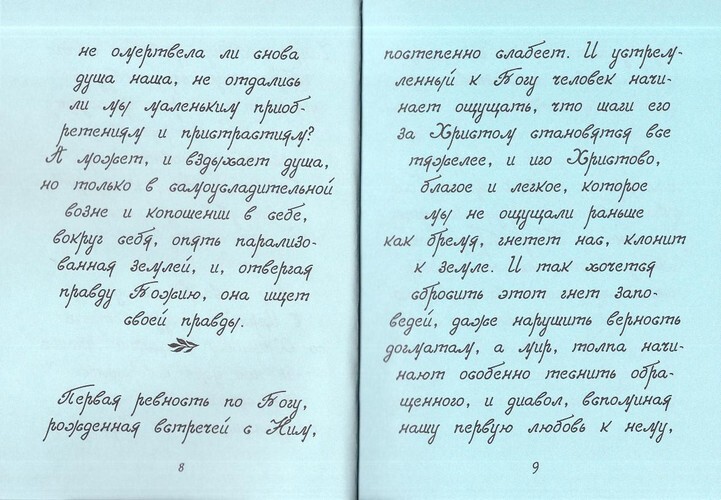 не омертвела ли снова
душа наша, не отдались
ли мы маленьким приоб-
ретениям и пристрастиям?
А может, и вздыхает душа,
но только в самоусладительной
возне и копошении в себе,
вокруг себя, опять парализо-
ванная землей, и, отвергая
правду Божию, она ищет
своей правды.
Первая ревность по Богу,
рожденная встречей с Ним,
8
постепенно слабеет. И устрем-
ленный к Богу человек начи-
нает ощущать, что шаги его
за Христом становятся все
тяжелее, и иго Христово,
благое и легкое, которое
мы не ощущали раньше
как бремя, гнетет нас, клонит
к земле. И так хочется
сбросить этот гнет запо-
ведей, даже нарушить верность
догматам, а мир, толпа начи-
нают особенно теснить обра-
щенного, и диавол, вспоминая
нашу первую любовь к нему,
9